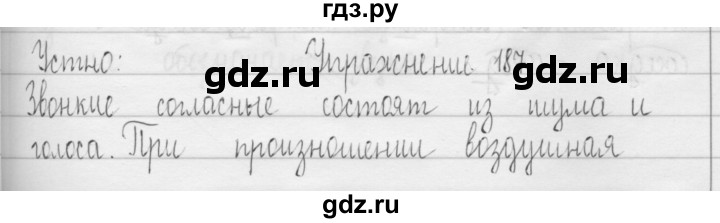 гдз.ру
Устно: Упражнение 187.
gdz.ru gdz.ru
Звонкие согласные состоят из шума и
голоса. При произношении воздушная
gdz.ru gdz.ru